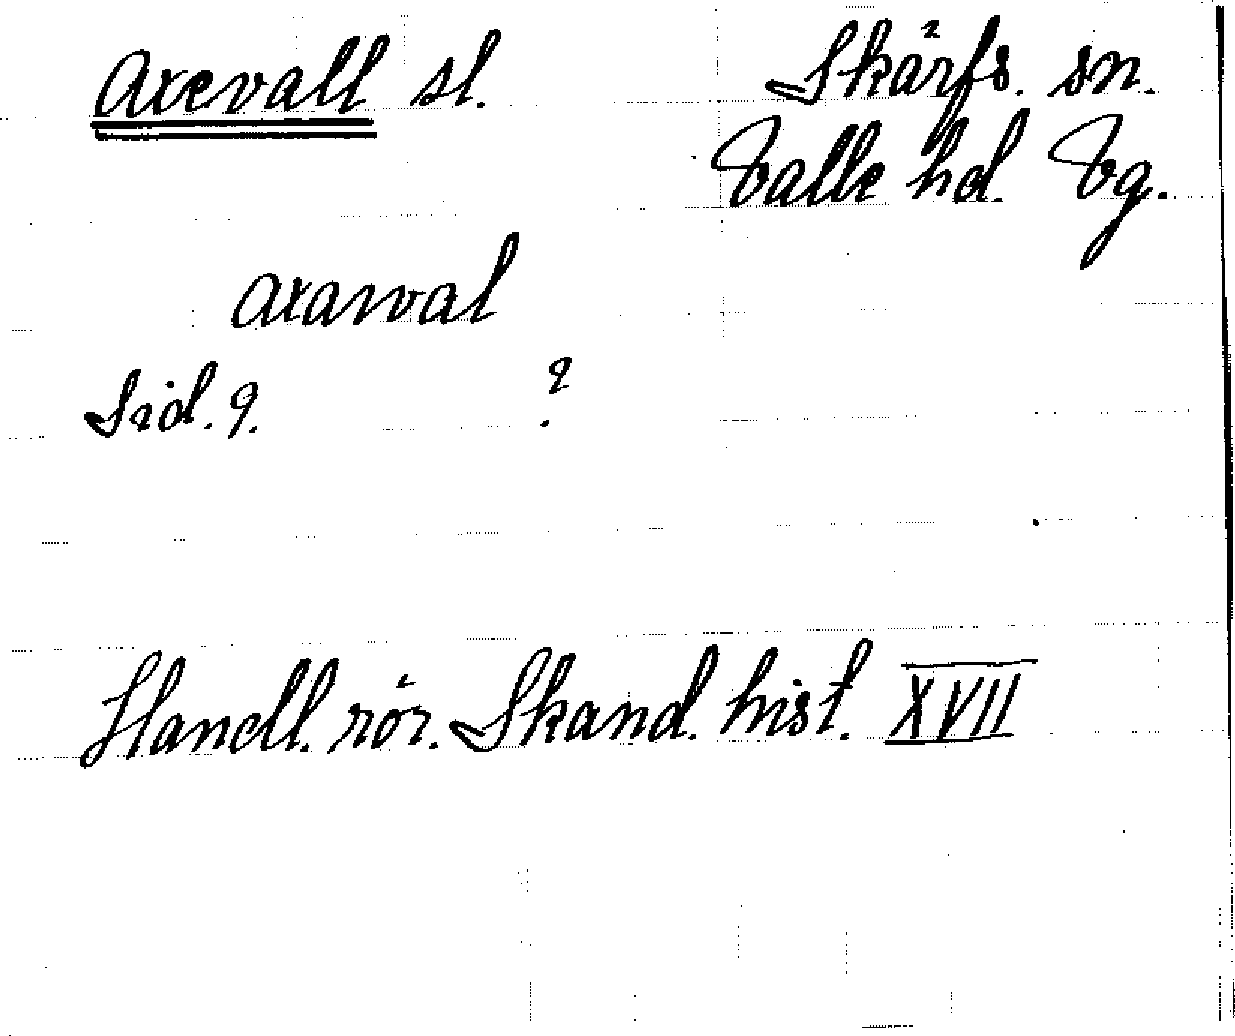 Axevall sl. Skärfs. sn.
Valle hd. Vg.
Axawal
Sid. 9. ?
Handl. rör. Skand. hist. XVII